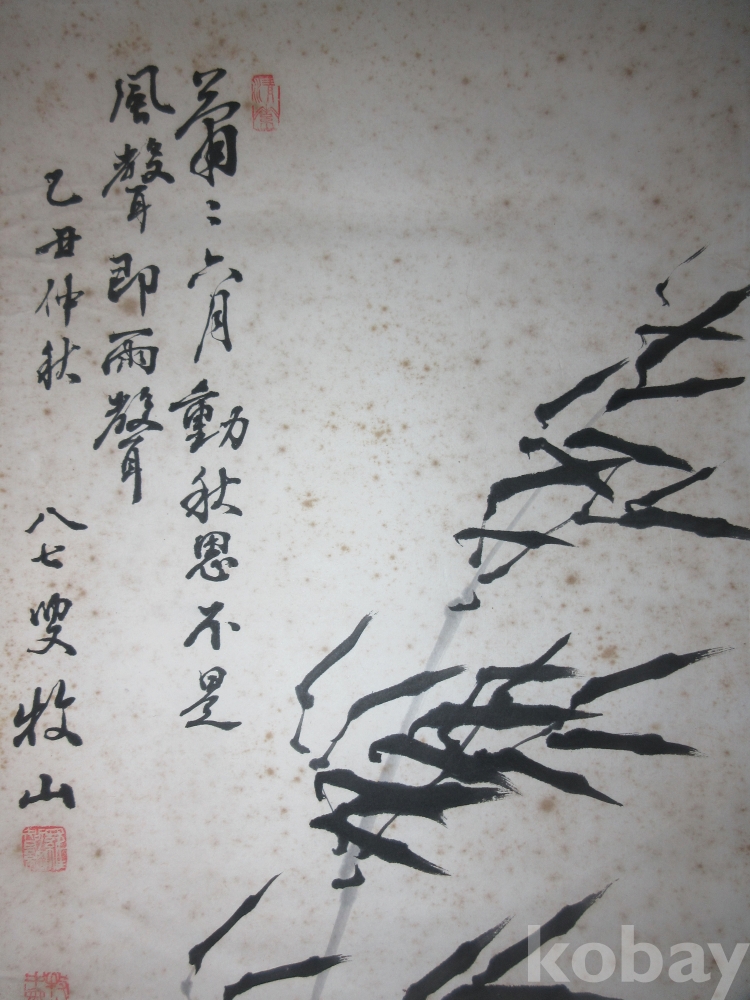 蕭〻六月動秋思不是
風聲即雨聲
己丑仲秋
八七叟牧山
kobay